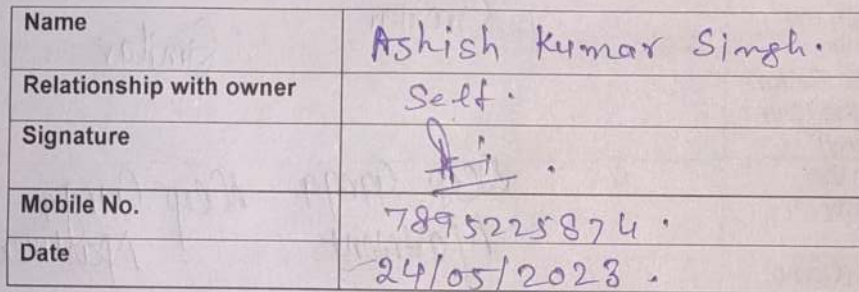 Name Ashish Kumar Singh.
Relationship with owner Self.
Signature
Mobile No. 7895225874.
Date 24/05/2023.